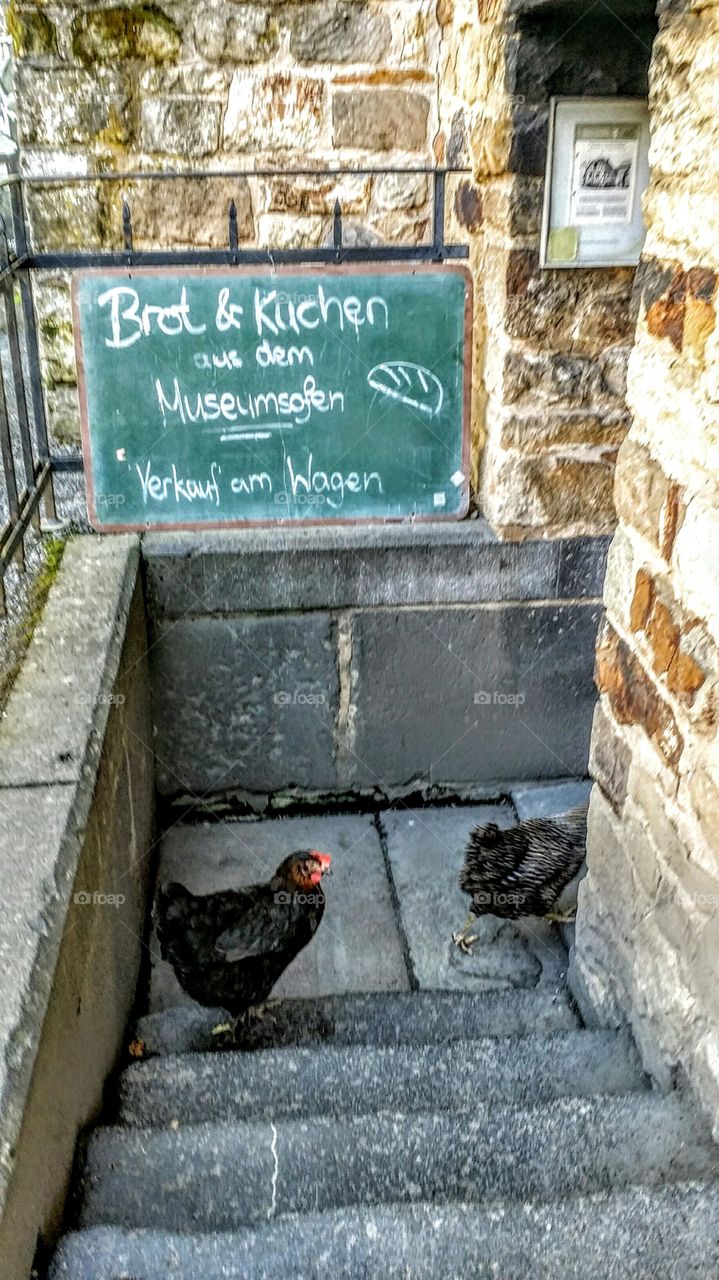 Brot & Kuchen
aus dem
Museumsofen
Verkauf am Wagen